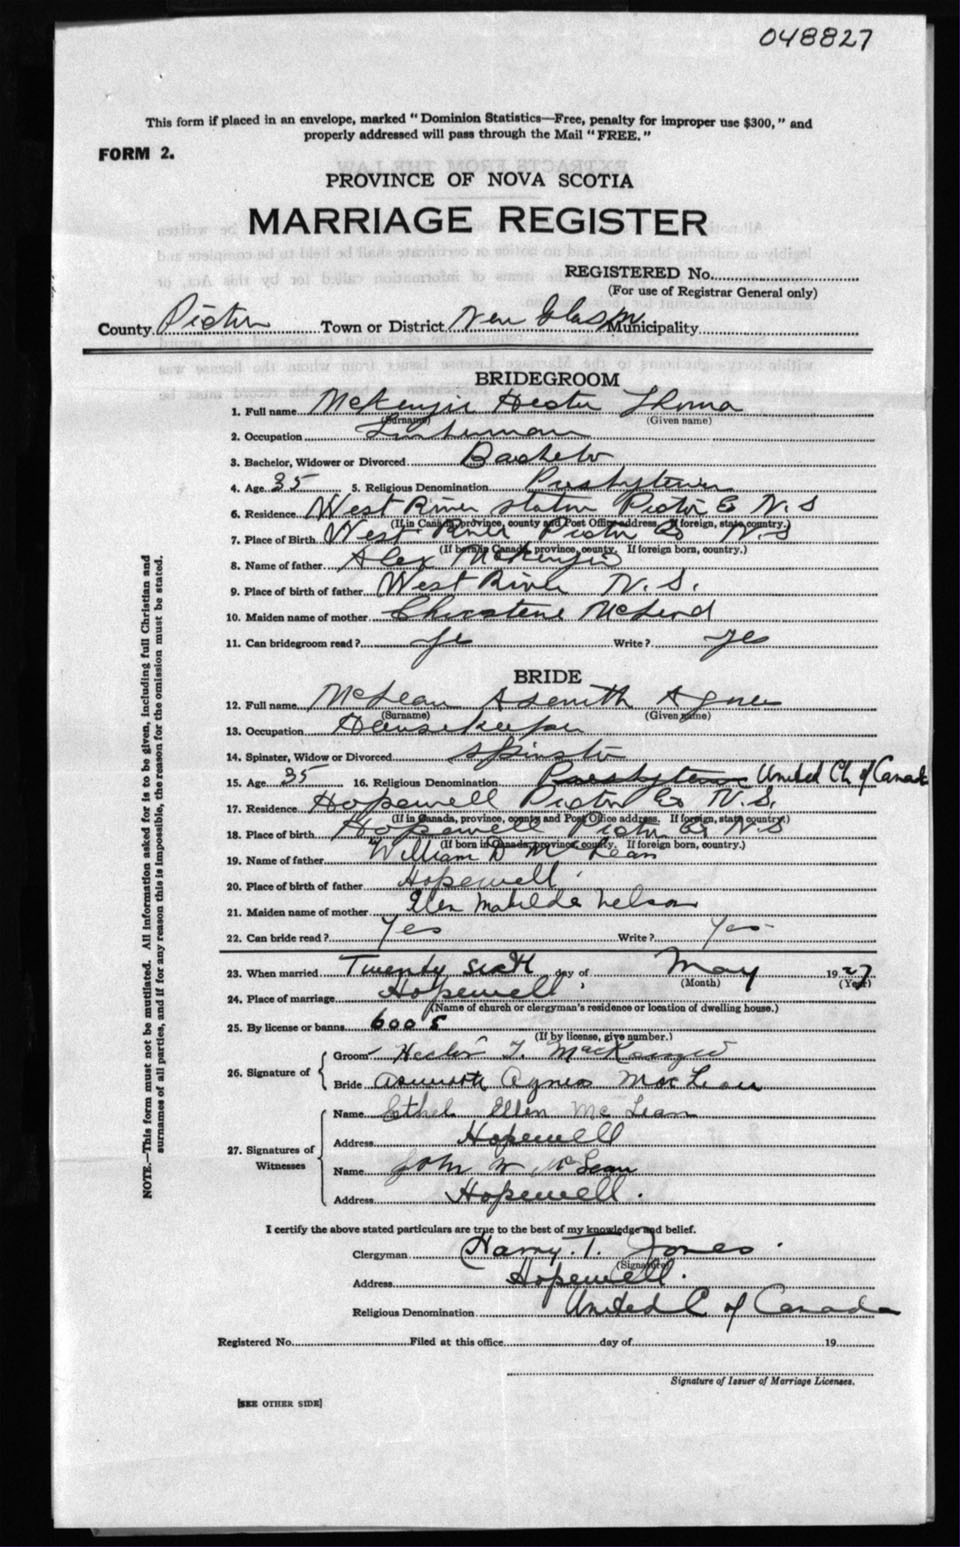 048827
This form if placed in an envelope, marked "Dominion Statistics—Free, penalty for improper use $300," and
properly addressed will pass through the Mail "FREE."
FORM 2.
PROVINCE OF NOVA SCOTIA
MARRIAGE REGISTER
REGISTERED No.
(For use of Registrar General only)
County Pictou Town or District New Glasgow Municipality
BRIDEGROOM
1. Full name McKenzie Hector Thomas
(Surname) (Given name)
2. Occupation
3. Bachelor, Widower or Divorced Bachelor
4. Age 35 5. Religious Denomination Presbyterian
6. Residence West River Station Pictou Co N.S
(If in Canada, province, county and Post Office address. If foreign, state country.)
7. Place of Birth West River Pictou Co N.S
(If born in Canada, province, county. If foreign born, country.)
8. Name of father Alex McKenzie
9. Place of birth of father West River N.S.
10. Maiden name of mother Christene McLeod
11. Can bridegroom read? yes Write? yes
BRIDE
12. Full name McLean Asenith Agnes
(Surname) (Given name)
13. Occupation Housekeeper
14. Spinster, Widow or Divorced Spinster
15. Age 35 16. Religious Denomination Presbyterian United Ch. of Canada
17. Residence Hopewell Pictou Co N.S.
(If in Canada, province, county and Post Office address. If foreign, state country)
18. Place of birth Hopewell Pictou Co N.S
(If born in Canada, province, county. If foreign born, country.)
19. Name of father William D McLean
20. Place of birth of father Hopewell
21. Maiden name of mother Ellen Matilda Nelson
22. Can bride read? Yes Write? Yes
23. When married Twenty sixth day of May 1927
(Month) (Year)
24. Place of marriage Hopewell
(Name of church or clergyman's residence or location of dwelling house.)
25. By license or banns 6005
(If by license, give number.)
26. Signature of Groom Hector T. MacKenzie
Bride Asenath Agnes MacLean
27. Signatures of Witnesses
Name Ethel Ellen McLean
Address Hopewell
Name John W McLean
Address Hopewell.
I certify the above stated particulars are true to the best of my knowledge and belief.
Clergyman Harry. T. Jones.
(Signature)
Address Hopewell.
Religious Denomination United C of Canada
Registered No. Filed at this office day of 19
Signature of Issuer of Marriage Licenses.
[SEE OTHER SIDE]
NOTE.—This form must not be mutilated. All information asked for is to be given, including full Christian and
surnames of all parties, and if for any reason this is impossible, the reason for the omission must be stated.